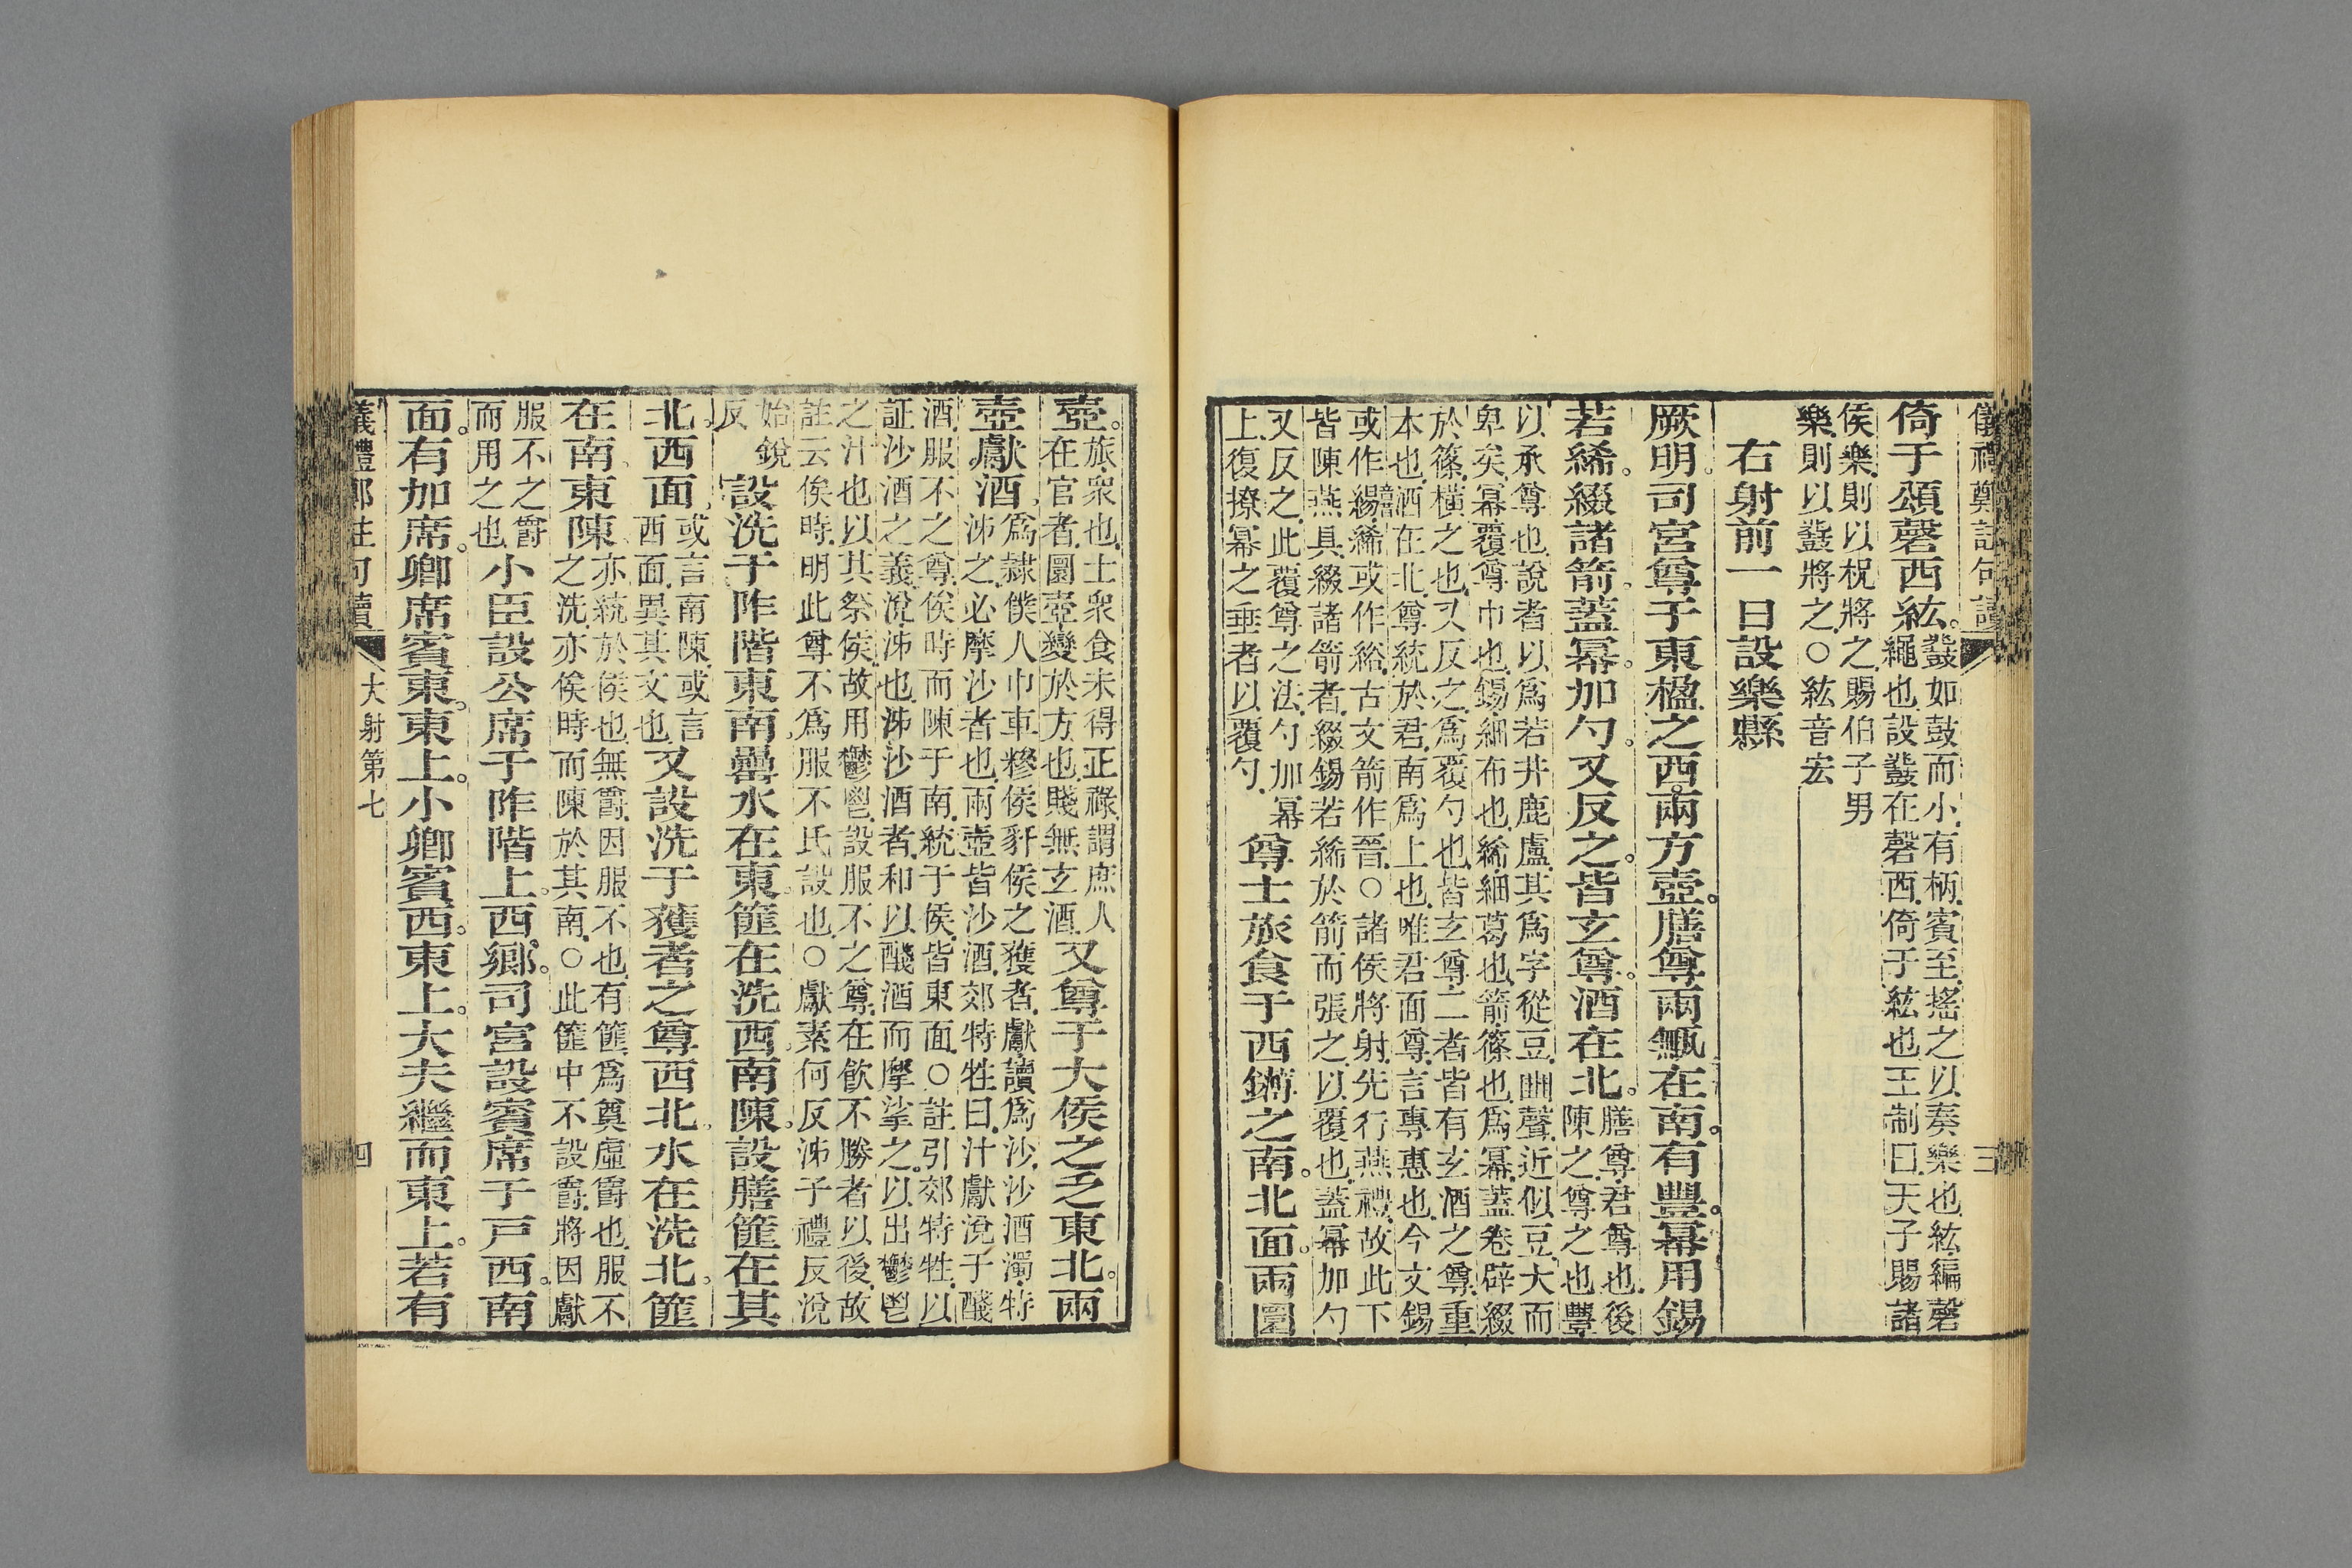 儀禮鄭註句讀 三
倚于頌磬西紘。鼗如鼓而小有柄賓至搖之以奏樂也紘編磬
繩也設鼗在磬西倚于紘也王制曰天子賜諸
侯樂則以柷將之賜伯子男
樂則以鼗將之○紘音宏
右射前一日設樂縣
厥明司宮尊于東楹之西兩方壺。膳尊兩甒在南。有豐。冪用錫
若絺。綴諸箭。蓋冪。加勺。又反之。皆玄尊。酒在北。膳尊君尊也後
陳之尊之也豐
以承尊也說者以爲若井鹿盧其爲字從豆𧯮聲近似豆大而
卑矣冪覆尊巾也錫細布也絺細葛也箭篠也爲冪蓋卷辟綴
於篠橫之也又反之爲覆勺也皆玄尊二者皆有玄酒之尊重
本也酒在北尊統於君南爲上也唯君面尊言專惠也今文錫
或作緆絺或作綌古文箭作晉○諸侯將射先行燕禮故此下
皆陳燕具綴諸箭者綴錫若絺於箭而張之以覆也蓋冪加勺
又反之此覆尊之法勺加冪
上復撩冪之垂者以覆勺
尊士旅食于西鑮之南。北面。兩圜
壺。旅衆也士衆食未得正祿謂庶人
在官者圜壺變於方也賤無玄酒
又尊于大侯之乏東北。兩
壺獻酒。爲隷僕人巾車糝侯豻侯之獲者獻讀爲沙沙酒濁特
泲之必摩沙者也兩壺皆沙酒郊特牲曰汁獻涚于醆
酒服不之尊俟時而陳于南統于侯皆東面○註引郊特牲以
証沙酒之義涚泲也泲沙酒者和以醆酒而摩挲之以出鬱鬯
之汁也以其祭侯故用鬱鬯設服不之尊在飲不勝者以後故
註云俟時明此尊不爲服不氏設也○獻素何反泲子禮反涚
始銳
反
設洗于阼階東南罍水在東篚在洗西南陳。設膳篚在其
北西面。或言南陳或言
西面異其文也
又設洗于獲者之尊西北。水在洗北。篚
在南東陳。亦統於侯也無爵因服不也有篚爲奠虛爵也服不
之洗亦俟時而陳於其南○此篚中不設爵將因獻
服不之爵
而用之也
小臣設公席于阼階上。西鄉。司宮設賓席于戶西。南
面。有加席。卿席賓東。東上。小卿賓西。東上。大夫繼而東上。若有
儀禮鄭註句讀 大射第七 四